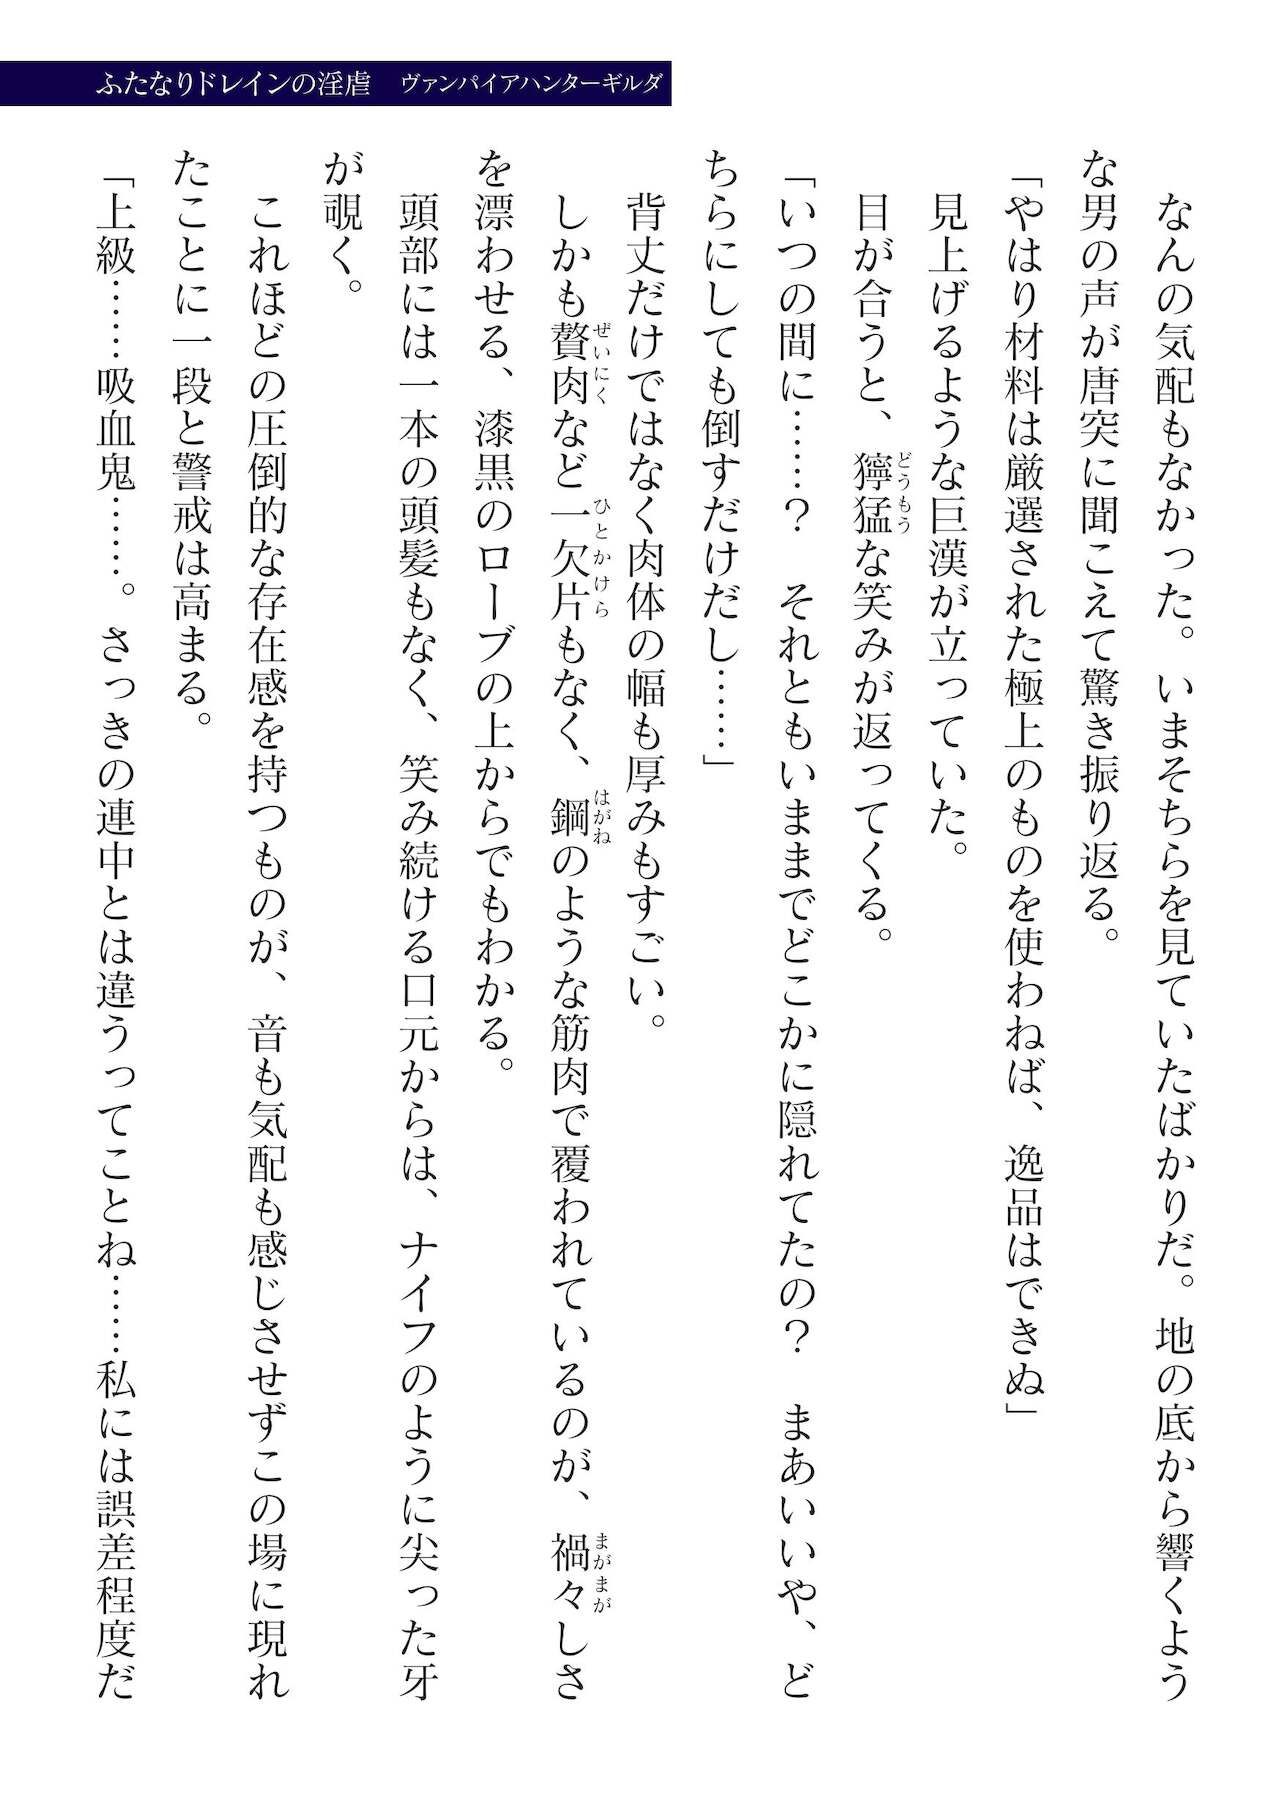 ふたなりドレインの淫虐　ヴァンパイアハンターギルダ
　なんの気配もなかった。いまそちらを見ていたばかりだ。地の底から響くよう
な男の声が唐突に聞こえて驚き振り返る。
「やはり材料は厳選された極上のものを使わねば、逸品はできぬ」
　見上げるような巨漢が立っていた。
　目が合うと、獰猛な笑みが返ってくる。
どうもう
「いつの間に……？　それともいままでどこかに隠れてたの？　まあいいや、ど
ちらにしても倒すだけだし……」
　背丈だけではなく肉体の幅も厚みもすごい。
　しかも贅肉など一欠片もなく、鋼のような筋肉で覆われているのが、禍々しさ
ぜいにく　ひとかけら　はがね　まがまが
を漂わせる、漆黒のローブの上からでもわかる。
　頭部には一本の頭髪もなく、笑み続ける口元からは、ナイフのように尖った牙
が覗く。
　これほどの圧倒的な存在感を持つものが、音も気配も感じさせずこの場に現れ
たことに一段と警戒は高まる。
「上級……吸血鬼……。さっきの連中とは違うってことね……私には誤差程度だ